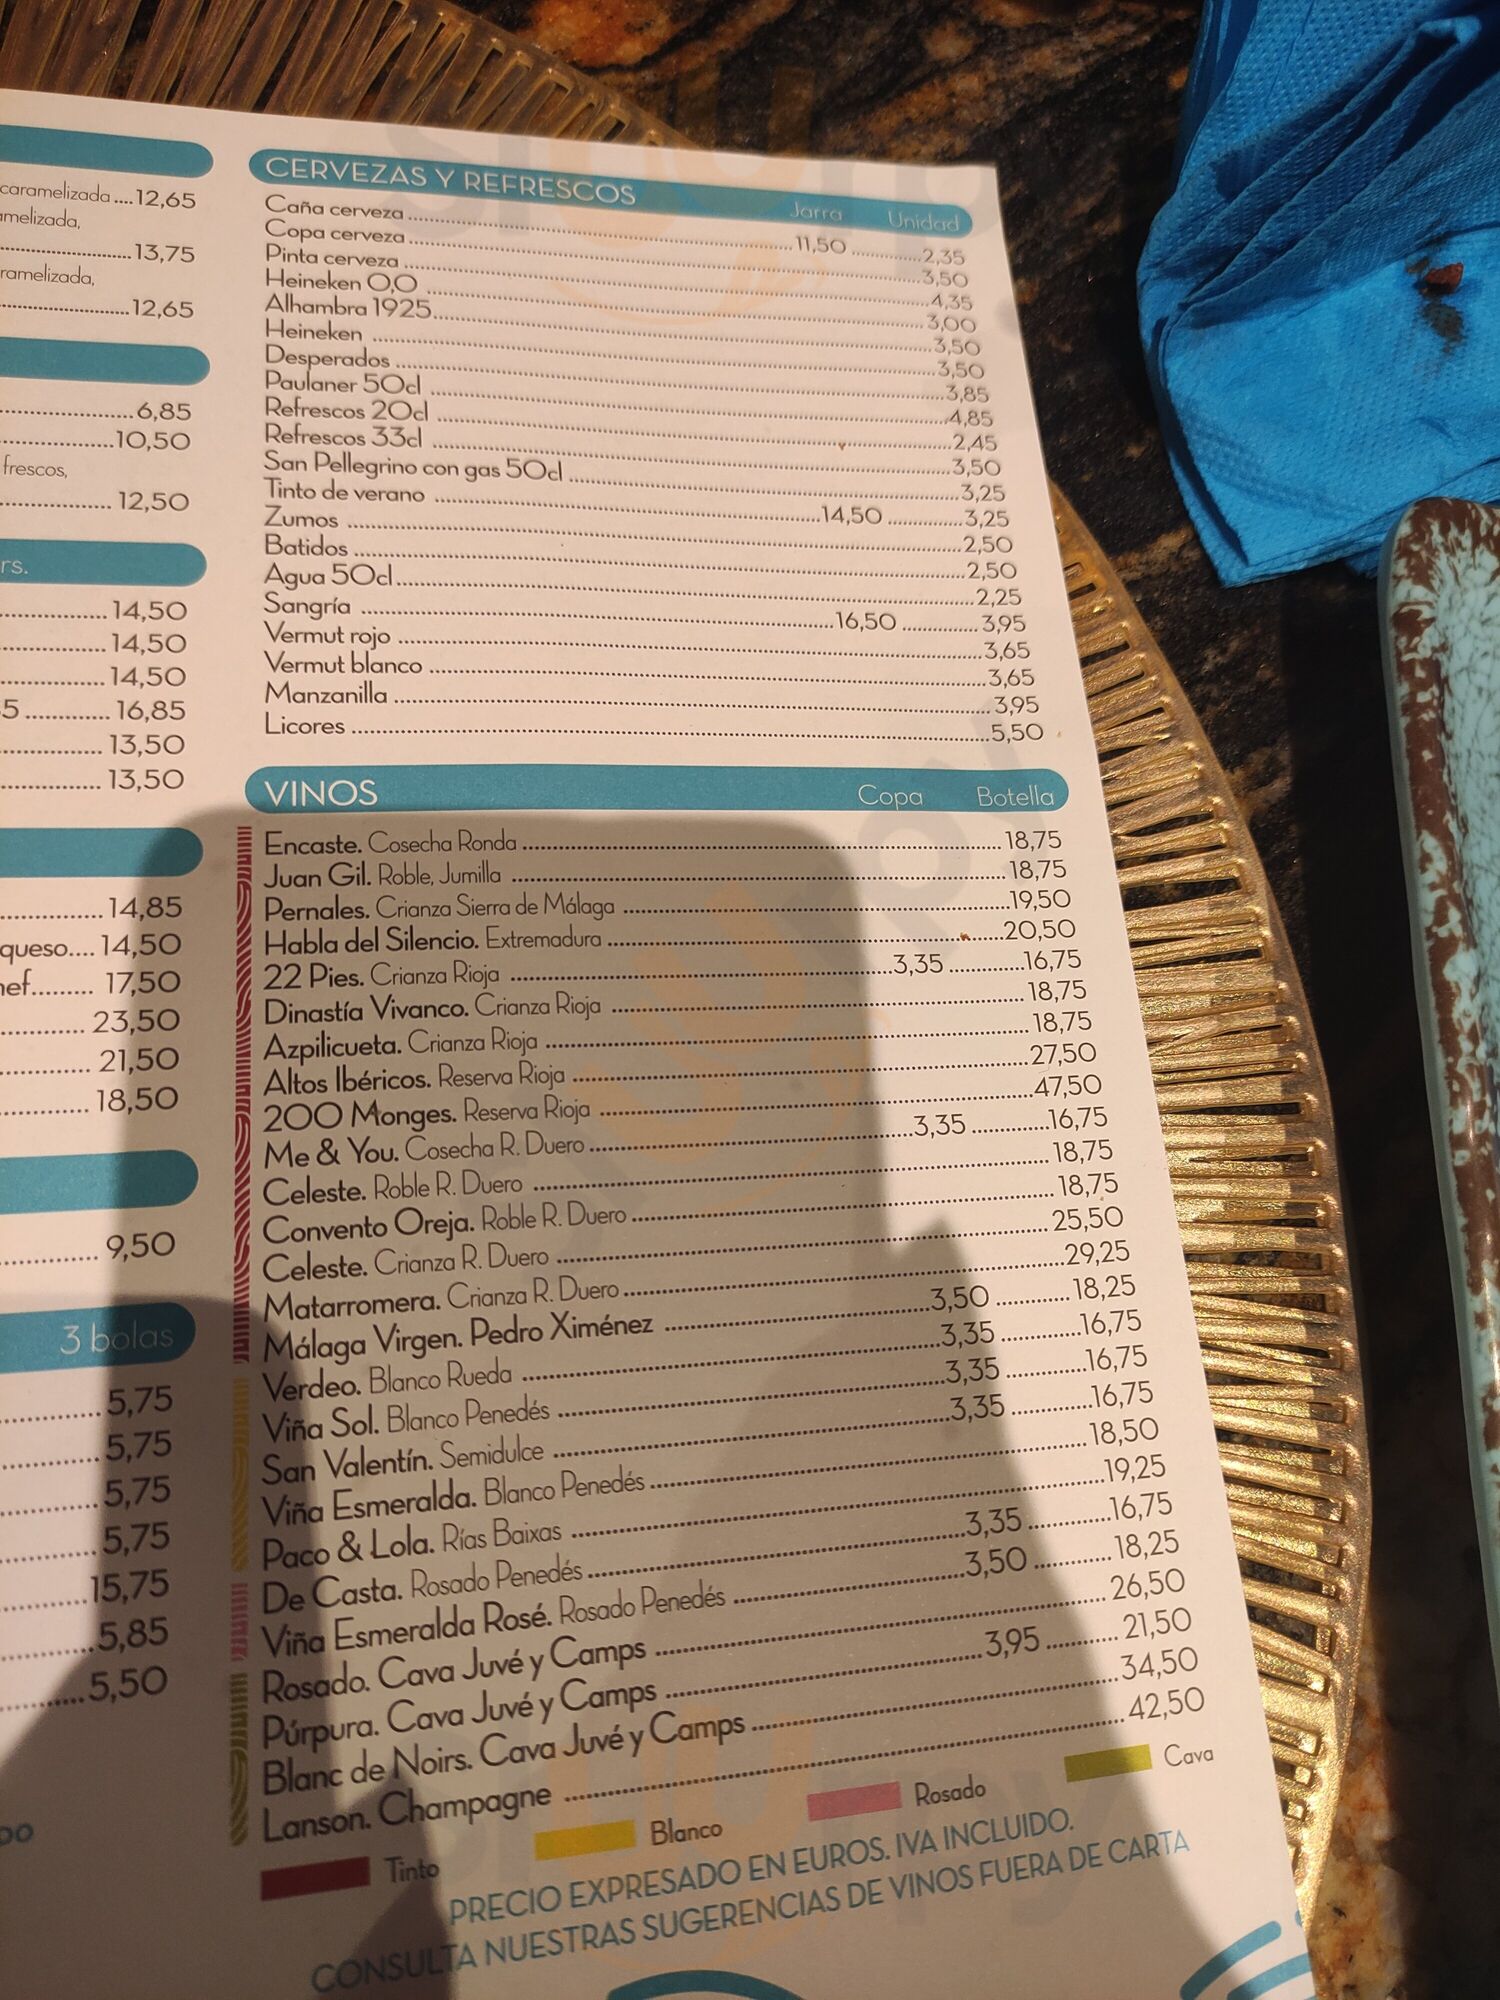 caramelizada....12,65
amelizada,
13,75
ramelizada,
12,65
6,85
10,50
frescos,
12,50
rs.
14,50
14,50
14,50
5 16,85
13,50
13,50
14,85
queso.... 14,50
hef......... 17,50
23,50
21,50
18,50
9,50
3 bolas
5,75
5,75
5,75
5,75
15,75
5,85
5,50
DO
CERVEZAS Y REFRESCOS Jarra Unidad
Caña cerveza 11,50 2,35
Copa cerveza 3,50
Pinta cerveza 4,35
Heineken 0,0 3,00
Alhambra 1925 3,50
Heineken 3,50
Desperados 3,85
Paulaner 50cl 4,85
Refrescos 20cl 2,45
Refrescos 33cl 3,50
San Pellegrino con gas 50cl 3,25
Tinto de verano 14,50 3,25
Zumos 2,50
Batidos 2,50
Agua 50cl 2,25
Sangría 16,50 3,95
Vermut rojo 3,65
Vermut blanco 3,65
Manzanilla 3,95
Licores 5,50
VINOS Copa Botella
Encaste. Cosecha Ronda 18,75
Juan Gil. Roble, Jumilla 18,75
Pernales. Crianza Sierra de Málaga 19,50
Habla del Silencio. Extremadura 20,50
22 Pies. Crianza Rioja 3,35 16,75
Dinastía Vivanco. Crianza Rioja 18,75
Azpilicueta. Crianza Rioja 18,75
Altos Ibéricos. Reserva Rioja 27,50
200 Monges. Reserva Rioja 47,50
Me & You. Cosecha R. Duero 3,35 16,75
Celeste. Roble R. Duero 18,75
Convento Oreja. Roble R. Duero 18,75
Celeste. Crianza R. Duero 25,50
Matarromera. Crianza R. Duero 29,25
Málaga Virgen. Pedro Ximénez 3,50 18,25
Verdeo. Blanco Rueda 3,35 16,75
Viña Sol. Blanco Penedés 3,35 16,75
San Valentín. Semidulce 3,35 16,75
Viña Esmeralda. Blanco Penedés 18,50
Paco & Lola. Rías Baixas 19,25
De Casta. Rosado Penedés 3,35 16,75
Viña Esmeralda Rosé. Rosado Penedés 3,50 18,25
Rosado. Cava Juvé y Camps 26,50
Púrpura. Cava Juvé y Camps 3,95 21,50
Blanc de Noirs. Cava Juvé y Camps 34,50
Lanson. Champagne 42,50
Tinto Blanco Rosado Cava
PRECIO EXPRESADO EN EUROS. IVA INCLUIDO.
CONSULTA NUESTRAS SUGERENCIAS DE VINOS FUERA DE CARTA